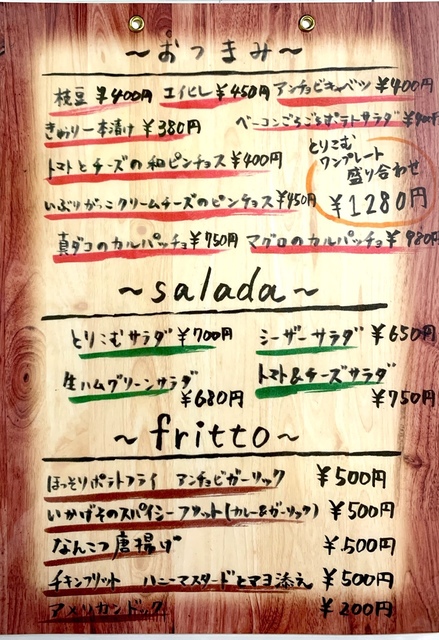 ～おつまみ～
枝豆 ¥400円 エイヒレ ¥450円 アンチョビキャベツ ¥400円
きゅうり一本漬け ¥380円 ベーコンごろごろポテトサラダ
トマトとチーズの和ピンチョス ¥400円
とりこむ
ワンプレート
盛り合わせ
¥1280円
いぶりがっこクリームチーズのピンチョス ¥450円
真ダコのカルパッチョ ¥750円 マグロのカルパッチョ ¥980円
～salada～
とりこむサラダ ¥700円 シーザーサラダ ¥650円
生ハムグリーンサラダ ¥680円 トマト&チーズサラダ ¥750円
～fritto～
ほっそりポテトフライ アンチョビガーリック ¥500円
いかげそのスパイシーフリット(カレー&ガーリック) ¥500円
なんこつ唐揚げ ¥500円
チキンフリット ハニーマスタードとマヨ添え ¥500円
アメリカンドック ¥200円